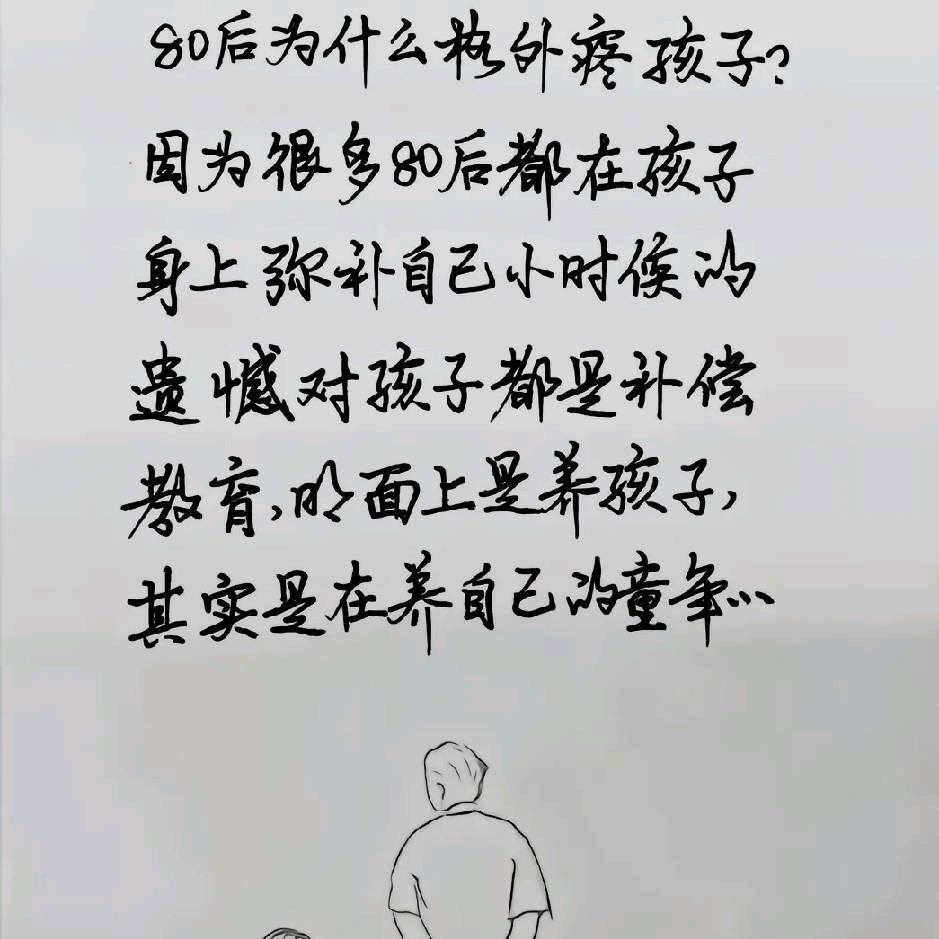 80后为什么格外疼孩子?
因为很多80后都在孩子
身上弥补自己小时候的
遗憾对孩子都是补偿
教育,明面上是养孩子,
其实是在养自己的童年...